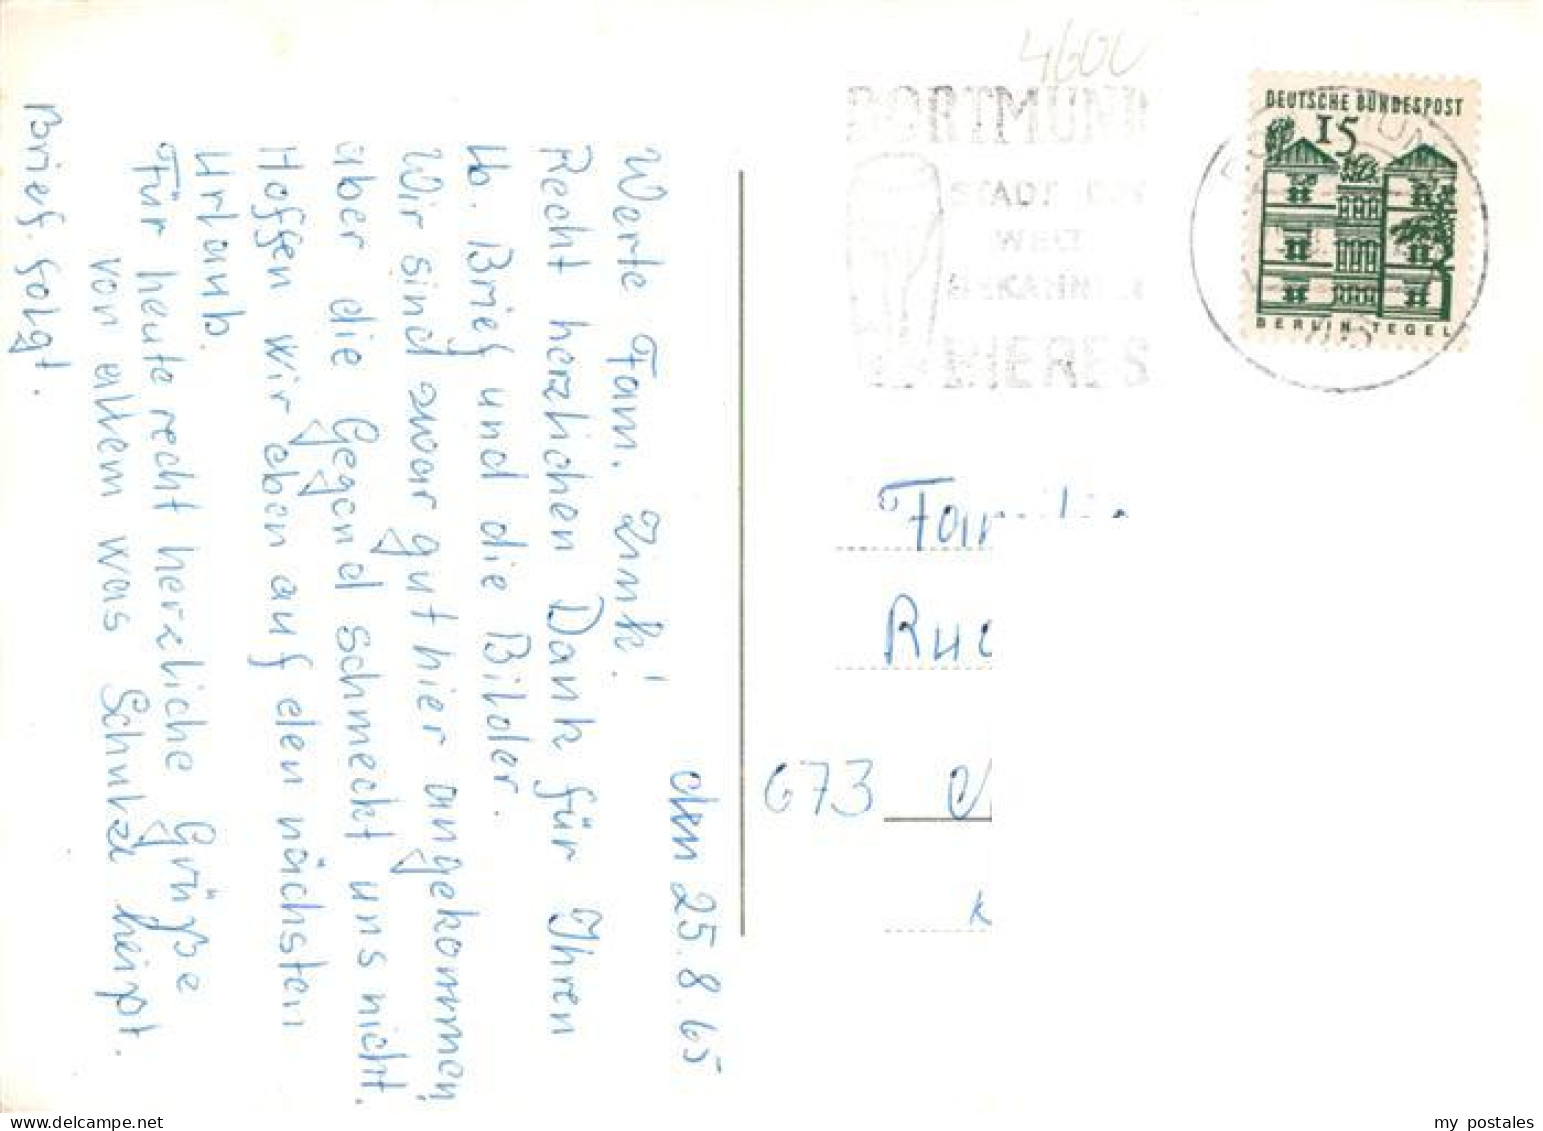 den 25.8.65
Werte Fam. Zink!
Recht herzlichen Dank für Ihren
lb. Brief und die Bilder.
Wir sind zwar gut hier angekommen,
aber die Gegend schmeckt uns nicht.
Hoffen wir eben auf den nächsten
Urlaub.
Für heute recht herzliche Grüße
von allem was Schulze heißt.
Brief folgt.
4600
DORTMUND
STADT DES
WELT
BEKANNTEN
BIERES
DEUTSCHE BUNDESPOST
15
BERLIN-TEGEL
Familie
673
my postales